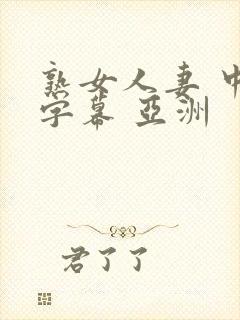 熟女人妻 中
字幕 亞洲
君了了